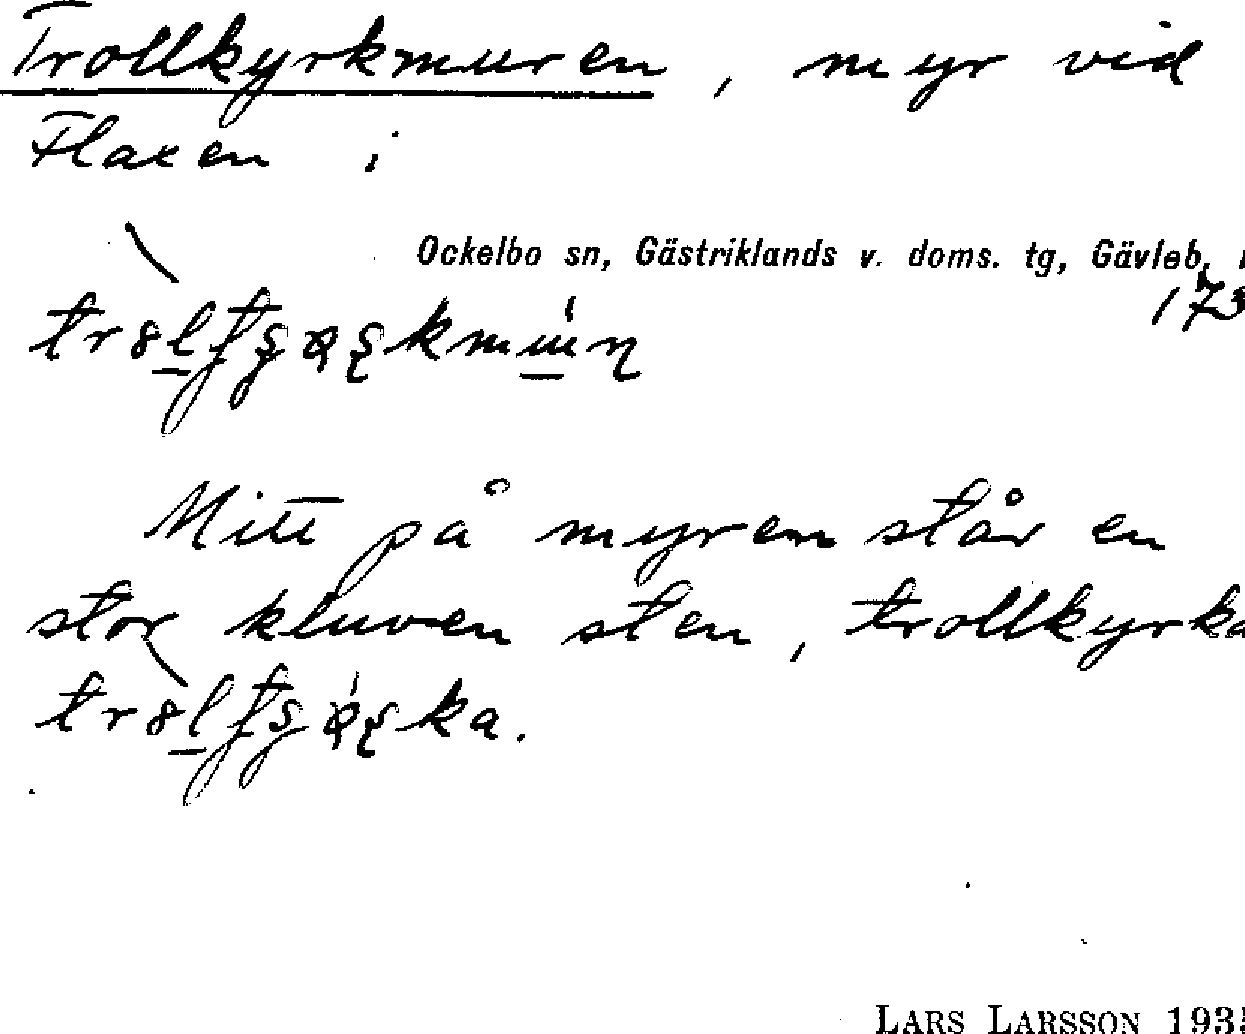 Trollkyrkmuren, myr vid
Flaxen i
Ockelbo sn, Gästriklands v. doms. tg, Gävleb.
173
Mitt på myren står en
stor kluven sten, trollkyrka
LARS LARSSON 1935